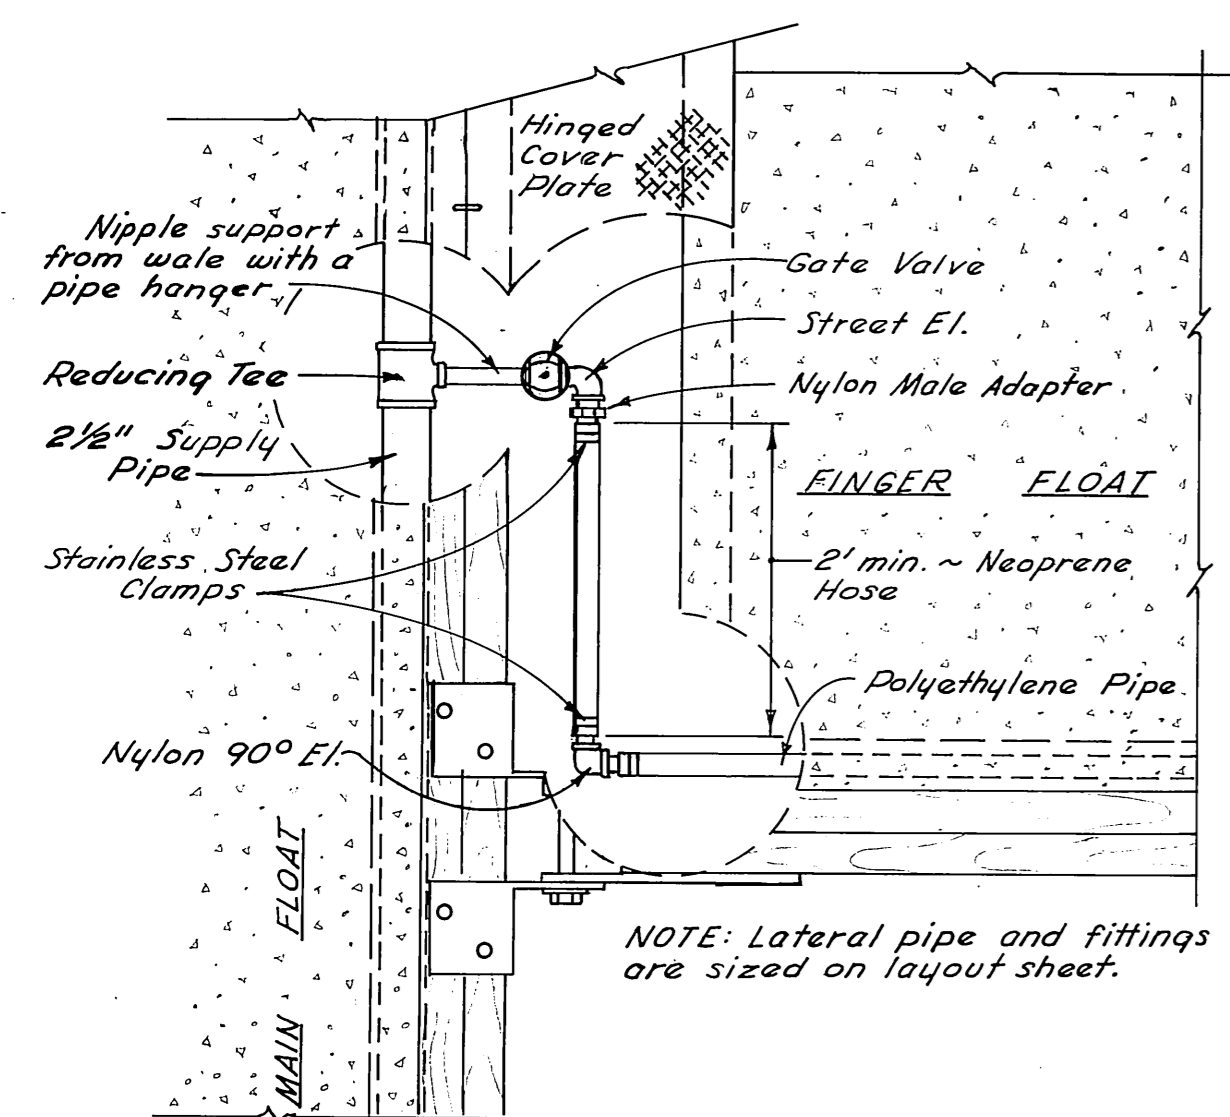 Hinged
Cover
Plate
Nipple support
from wale with a
pipe hanger
Gate Valve
Street El.
Reducing Tee
Nylon Male Adapter
2½" Supply
Pipe
FINGER FLOAT
Stainless Steel
Clamps
2' min. ~ Neoprene
Hose
Polyethylene Pipe
Nylon 90° El.
MAIN FLOAT
NOTE: Lateral pipe and fittings
are sized on layout sheet.